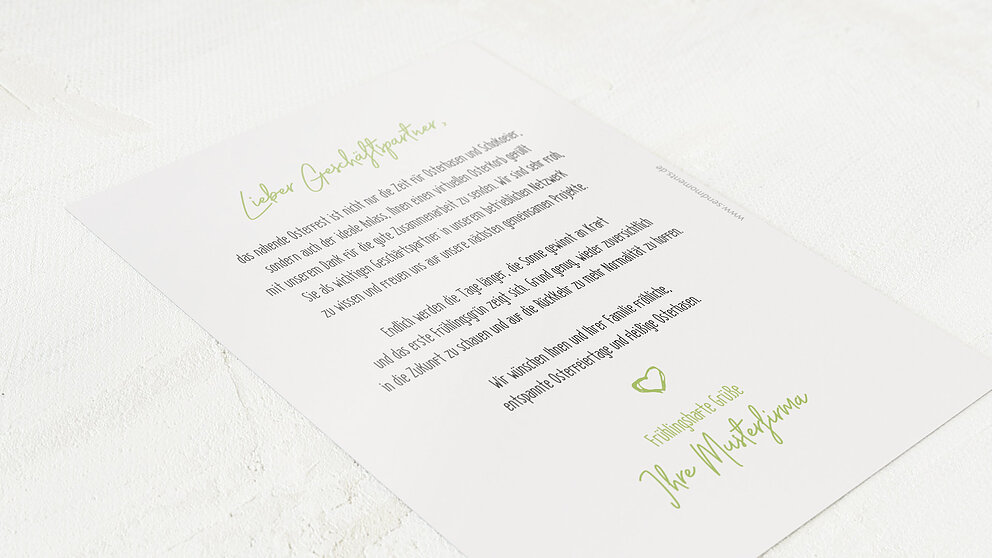 Lieber Geschäftspartner,
das nahende Osterfest ist nicht nur die Zeit für Osterhasen und Schokoeier,
sondern auch der ideale Anlass, Ihnen einen virtuellen Osterkorb gefüllt
mit unserem Dank für die gute Zusammenarbeit zu senden. Wir sind sehr froh,
Sie als wichtigen Geschäftspartner in unserem betrieblichen Netzwerk
zu wissen und freuen uns auf unsere nächsten gemeinsamen Projekte.
Endlich werden die Tage länger, die Sonne gewinnt an Kraft
und das erste Frühlingsgrün zeigt sich. Grund genug, wieder zuversichtlich
in die Zukunft zu schauen und auf die Rückkehr zu mehr Normalität zu hoffen.
Wir wünschen Ihnen und Ihrer Familie fröhliche,
entspannte Osterfeiertage und fleißige Osterhasen.
Frühlingshafte Grüße
Ihre Musterfirma
www.sendmoments.de